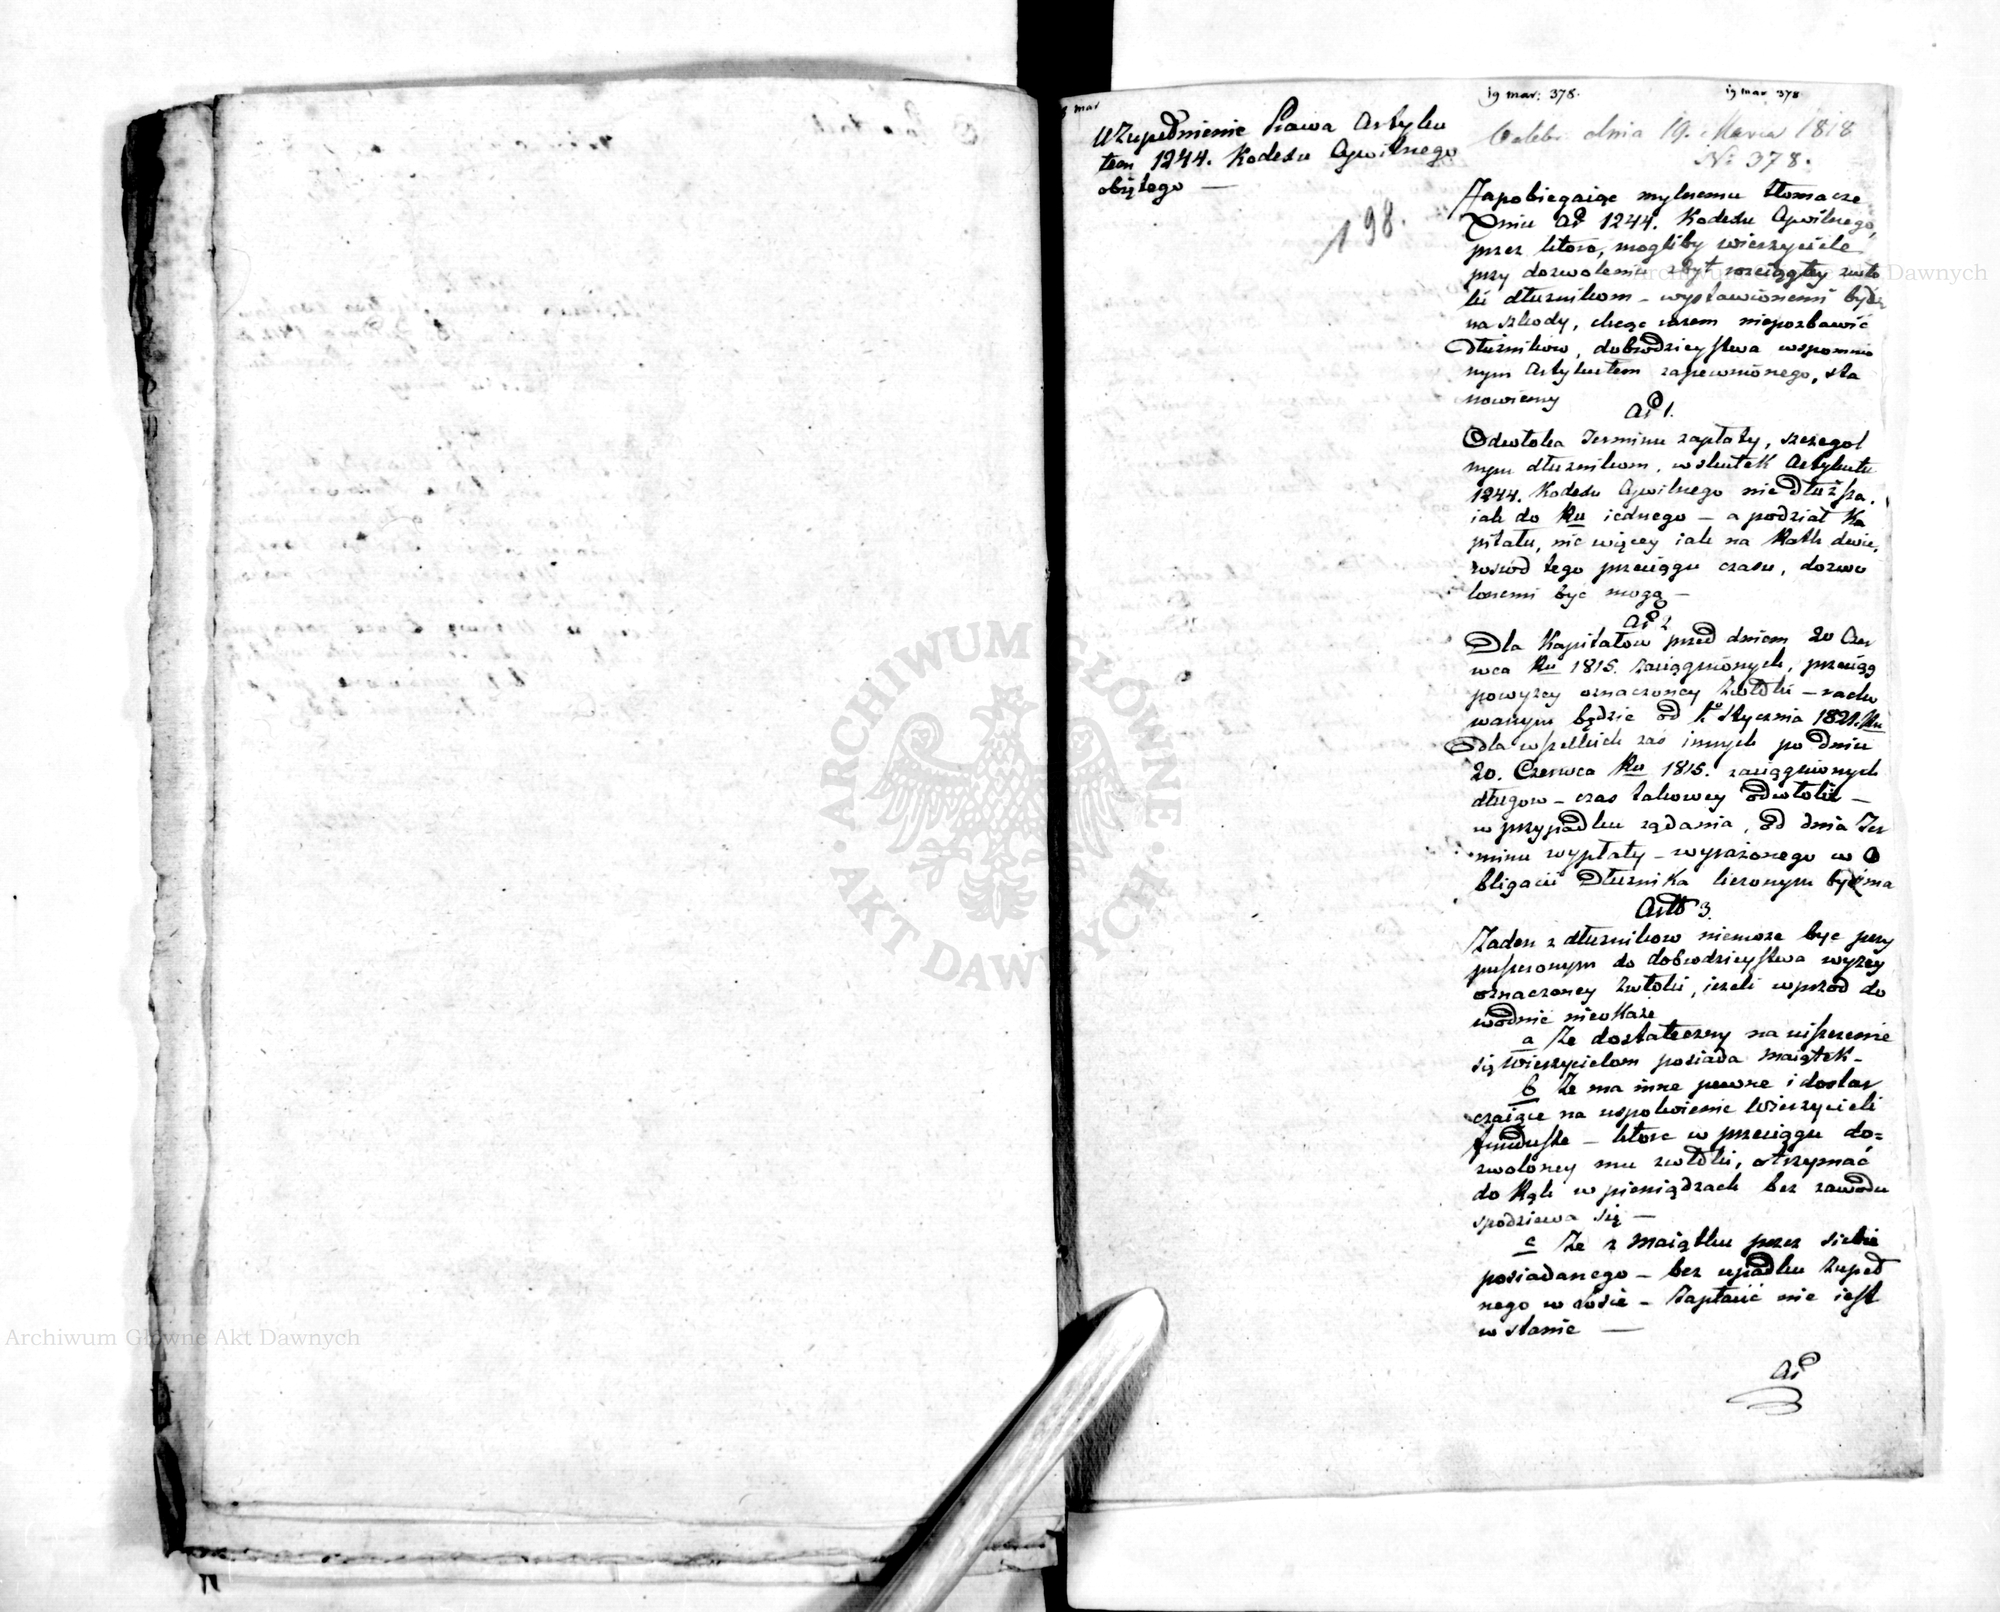 19 mar: 378.
19 mar 378
mar
Uzupełnienie Prawa Artyku
łem 1244. Kodexu Cywilnego
obiętego —
198.
dnia 19. Marca 1818
No 378.
Zapobiegaiąc mylnemu tłomacze
niu Art 1244. Kodexu Cywilnego,
przez które, mogliby wierzyciele
przy dozwoleniu zbyt rozciągłey zwło
ki dłużnikom – wystawionemi bydź
na szkody, chcąc razem niepozbawić
Dłużników, dobrodzieystwa wspomnio
nym Artykułem zapewnionego, sta
nowiemy
Art 1.
Odwłoka Terminu zapłaty, szczegol
nym dłużnikom, wskutek Artykułu
1244. Kodexu Cywilnego nie dłuższa,
iak do Ru iednego – a podział Ka
pitału, nie więcey iak na Raty dwie,
wśród tego przeciągu czasu, dozwo
lonemi być mogą –
Art 2
Dla Kapitałów przed dniem 20 Czer
wca Ru 1815. zaciągnionych, przeciąg
powyżey oznaczoney zwłoki – racho
wanym będzie od 1o Stycznia 1821. Ru
Dla wszelkich zaś innych po dniu
20. Czerwca Ru 1815. zaciągnionych
długow – czas takowey odwłoki –
w przypadku żądania, od dnia Ter
minu wypłaty – wyrażonego w O
bligacii Dłużnika liczonym być ma
Artt 3.
Żaden z dłużników niemoże być przy
puszczonym do dobrodzieystwa wyżey
oznaczoney zwłoki, ieżeli wprzód do
wodnie nieokaże
a Że dostateczny na uiszczenie
się Wierzycielom posiada maiątek –
b Że ma inne pewne i dostar
czaiące na uspokoienie Wierzycieli
fundusze – które w przeciągu do=
zwoloney mu zwłoki, otrzymać
do Rąk w pieniądzach bez zawodu
spodziewa się —
c Że z Maiątku przez siebie
posiadanego – bez upadku zupeł
nego w losie – zapłacić nie iest
w stanie —
Art
Archiwum Główne Akt Dawnych
Archiwum Główne Akt Dawnych
ARCHIWUM GŁÓWNE AKT DAWNYCH